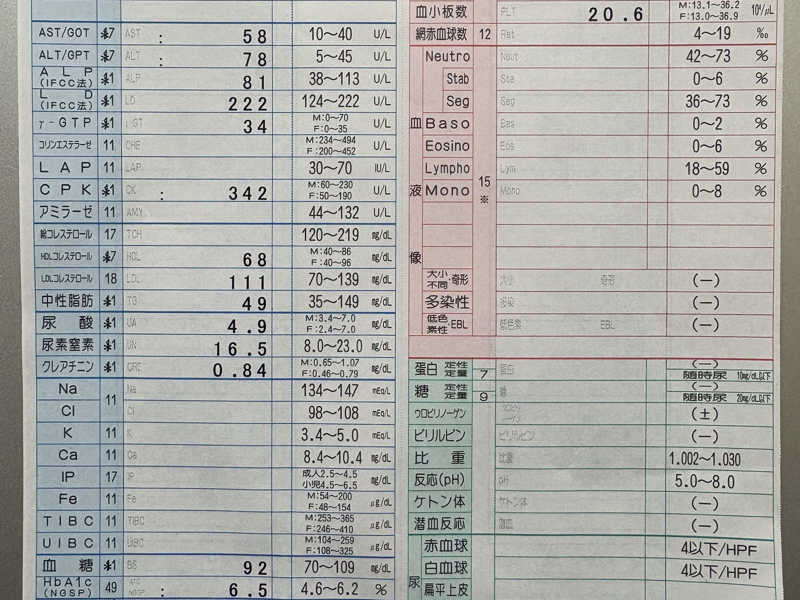 AST/GOT ※7 AST : 58 10～40 U/L
ALT/GPT ※7 ALT : 78 5～45 U/L
ALP (IFCC法) ※1 ALP 81 38～113 U/L
LD (IFCC法) ※1 LD 222 124～222 U/L
γ-GTP ※1 γ-GT 34 M:0～70 F:0～35 U/L
コリンエステラーゼ 11 CHE M:234～494 F:200～452 U/L
LAP 11 LAP 30～70 IU/L
CPK ※1 CK : 342 M:60～230 F:50～190 U/L
アミラーゼ 11 AMY 44～132 U/L
総コレステロール 17 TCH 120～219 mg/dL
HDLコレステロール ※7 HDL 68 M:40～86 F:40～96 mg/dL
LDLコレステロール 18 LDL 111 70～139 mg/dL
中性脂肪 ※1 TG 49 35～149 mg/dL
尿酸 ※1 UA 4.9 M:3.4～7.0 F:2.4～7.0 mg/dL
尿素窒素 ※1 UN 16.5 8.0～23.0 mg/dL
クレアチニン ※1 CRE 0.84 M:0.65～1.07 F:0.46～0.79 mg/dL
Na 11 Na 134～147 mEq/L
Cl Cl 98～108 mEq/L
K 11 K 3.4～5.0 mEq/L
Ca 11 Ca 8.4～10.4 mg/dL
IP 17 IP 成人2.5～4.5 小児4.5～6.5 mg/dL
Fe 11 Fe M:54～200 F:48～154 μg/dL
TIBC 11 TIBC M:253～365 F:246～410 μg/dL
UIBC 11 UIBC M:104～259 F:108～325 μg/dL
血糖 ※1 BS 92 70～109 mg/dL
HbA1c (NGSP) 49 NGSP : 6.5 4.6～6.2 %
血小板数 PLT 20.6 M:13.1～36.2 F:13.0～36.9 10⁴/μL
網赤血球数 12 Ret 4～19 ‰
血液像 15 ※
Neutro Neut 42～73 %
Stab Sta 0～6 %
Seg Seg 36～73 %
Baso Bas 0～2 %
Eosino Eos 0～6 %
Lympho Lym 18～59 %
Mono Mono 0～8 %
大小不同・奇形 大小 奇形 (－)
多染性 多染 (－)
低色素性・EBL 低色素 EBL (－)
蛋白 定性 定量 7 蛋白 (－) 随時尿 10mg/dL以下
糖 定性 定量 9 糖 (－) 随時尿 20mg/dL以下
ウロビリノーゲン (±)
ビリルビン ビリルビン (－)
比重 比重 1.002～1.030
反応(pH) pH 5.0～8.0
ケトン体 ケトン体 (－)
潜血反応 潜血 (－)
尿
赤血球 4以下/HPF
白血球 4以下/HPF
扁平上皮